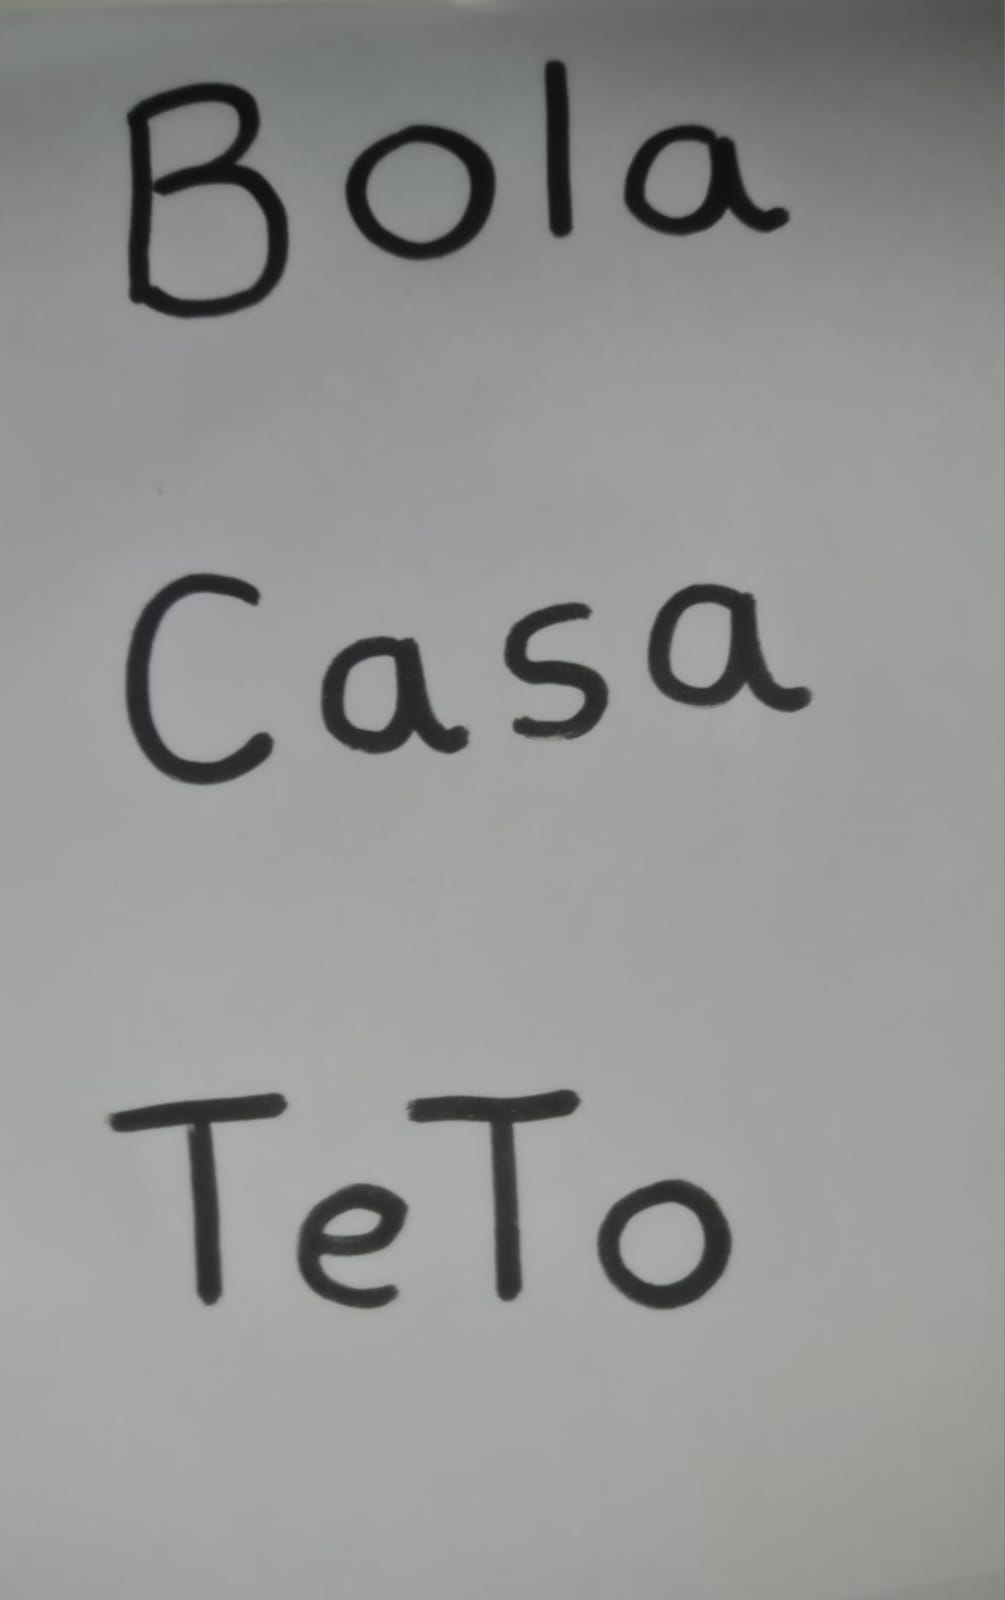 Bola
Casa
TeTo